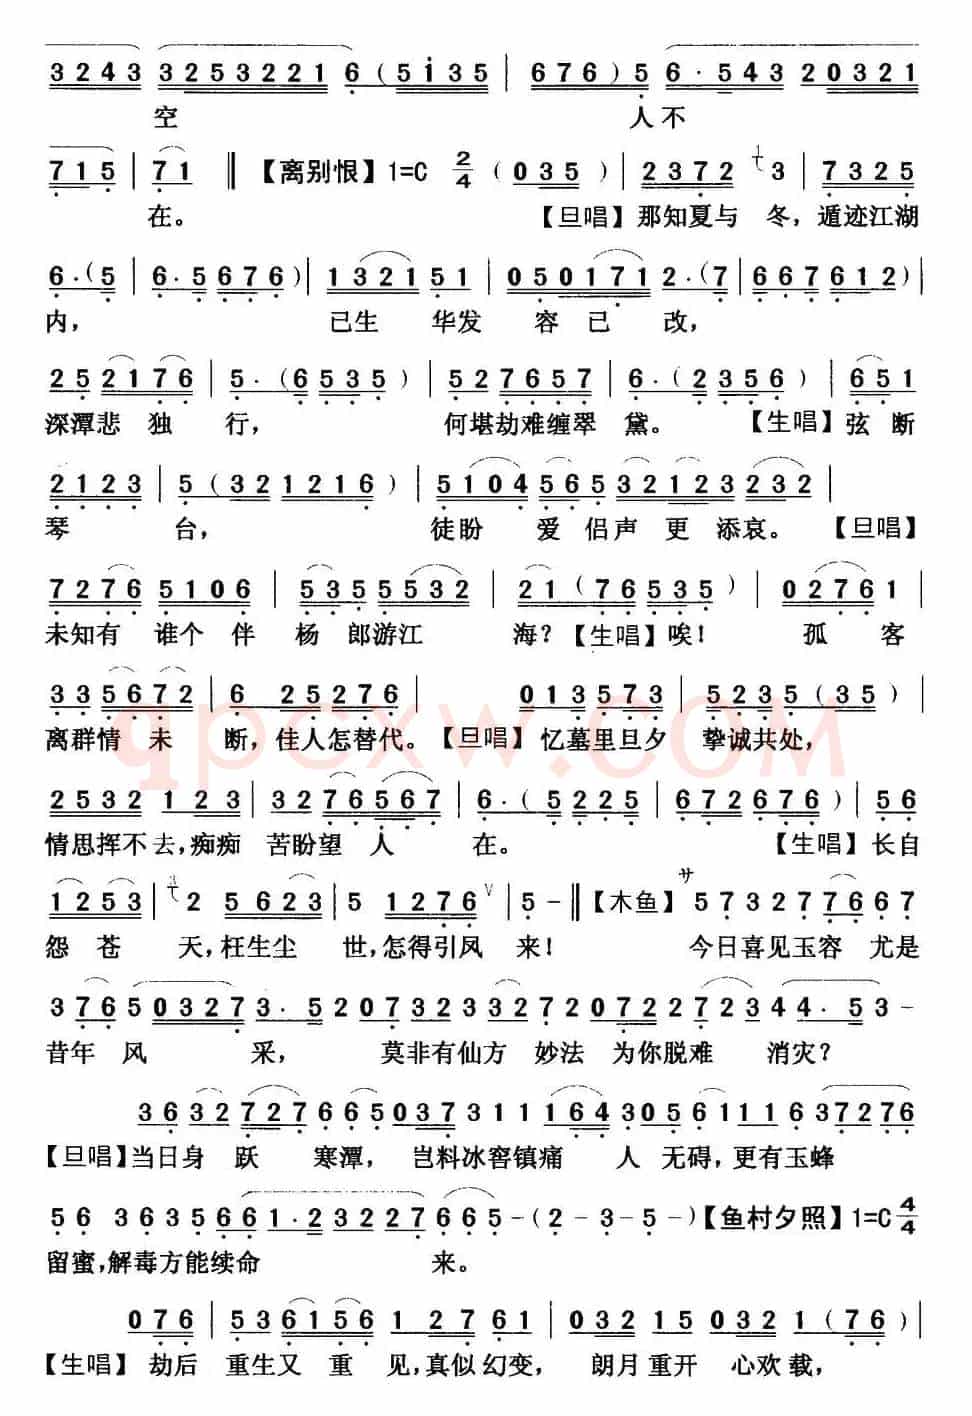 3243 3253221 6 (5i35 | 676) 5 6·543 20321
空 人不
715 | 71 ‖ 【离别恨】1=C 2/4 (035) | 2372 3 | 7325
在。 【旦唱】那知夏与 冬，遁迹江湖
6·(5 | 6·5676) | 132151 | 050171 2·(7 | 667612) |
内， 已生 华发 容已 改，
252176 | 5·(6535) | 527657 | 6·(2356) | 651
深潭悲 独 行， 何堪劫难缠翠 黛。 【生唱】弦断
2123 | 5(321216) | 510456532123232 |
琴 台， 徒盼 爱侣声更 添哀。【旦唱】
72765106 | 5355532 | 21(76535) | 02761
未知有 谁个 伴 杨 郎游江 海？【生唱】唉！ 孤 客
335672 | 6 25276 | 013573 | 5235(35) |
离群情 未 断，佳人怎替代。【旦唱】忆墓里旦夕 挚诚共处，
2532 123 | 3276567 | 6·(5225 | 672676) | 56
情思挥不去，痴痴 苦盼望 人 在。 【生唱】长自
1253 | 3 2 5623 | 5 1276 V | 5 - ‖ 【木鱼】 サ 573277667
怨 苍 天，枉生尘 世，怎得引凤 来！ 今日喜见玉容 尤是
376503273·52073233272072272344·53-
昔年 风 采， 莫非有仙方 妙法 为你脱难 消灾？
36327276650373111643056111637276
【旦唱】当日身 跃 寒潭， 岂料冰窖镇痛 人 无碍，更有玉蜂
56 3635661·23227665-(2-3-5-)【鱼村夕照】1=C 4/4
留蜜，解毒方能续命 来。
076 | 536156 1 2761 | 03215032 1 (76) |
【生唱】 劫后 重生又 重 见，真似幻变， 朗月重开 心欢载，
qpcxw.COM